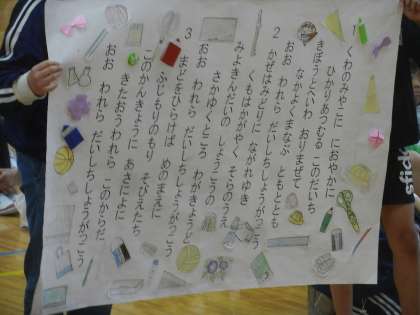 くわのみやこに におやかに
ひかりあつむる このだいち
きぼうといわ おりまぜて
なかよくまなぶ ともとども
おお われら だいしちしょうがっこう
2 かぜはみどりに ながれゆき
くもはかがやく そらのうえ
みよきんだいの しょうがっこうの
さかゆくところ わがきょうど
おお われら だいしちしょうがっこう
3 まどをひらけば めのまえに
ふじもりのもり そびえたち
このかんきょうに あさによに
きたおうわれら このからだ
おお われら だいしちしょうがっこう
stick